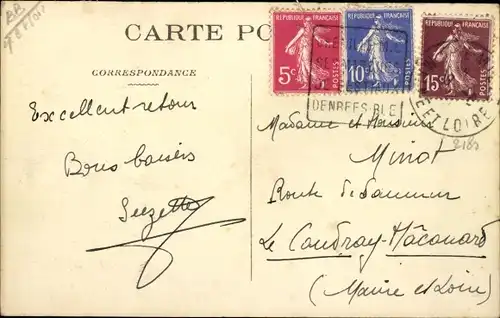 CARTE PO
CORRESPONDANCE
REPUBLIQUE FRANÇAISE
5c
POSTES
REPUBLIQUE FRANÇAISE
10c
POSTES
REPUBLIQUE FRANÇAISE
15c
POSTES
DENREES-BLE
ET LOIRE
2189
Excellent retour
Bons baisers
Suzette
Madame et Monsieur
Minot
Route de Saumur
Le Coudray-Mâconard
(Maine et Loire)